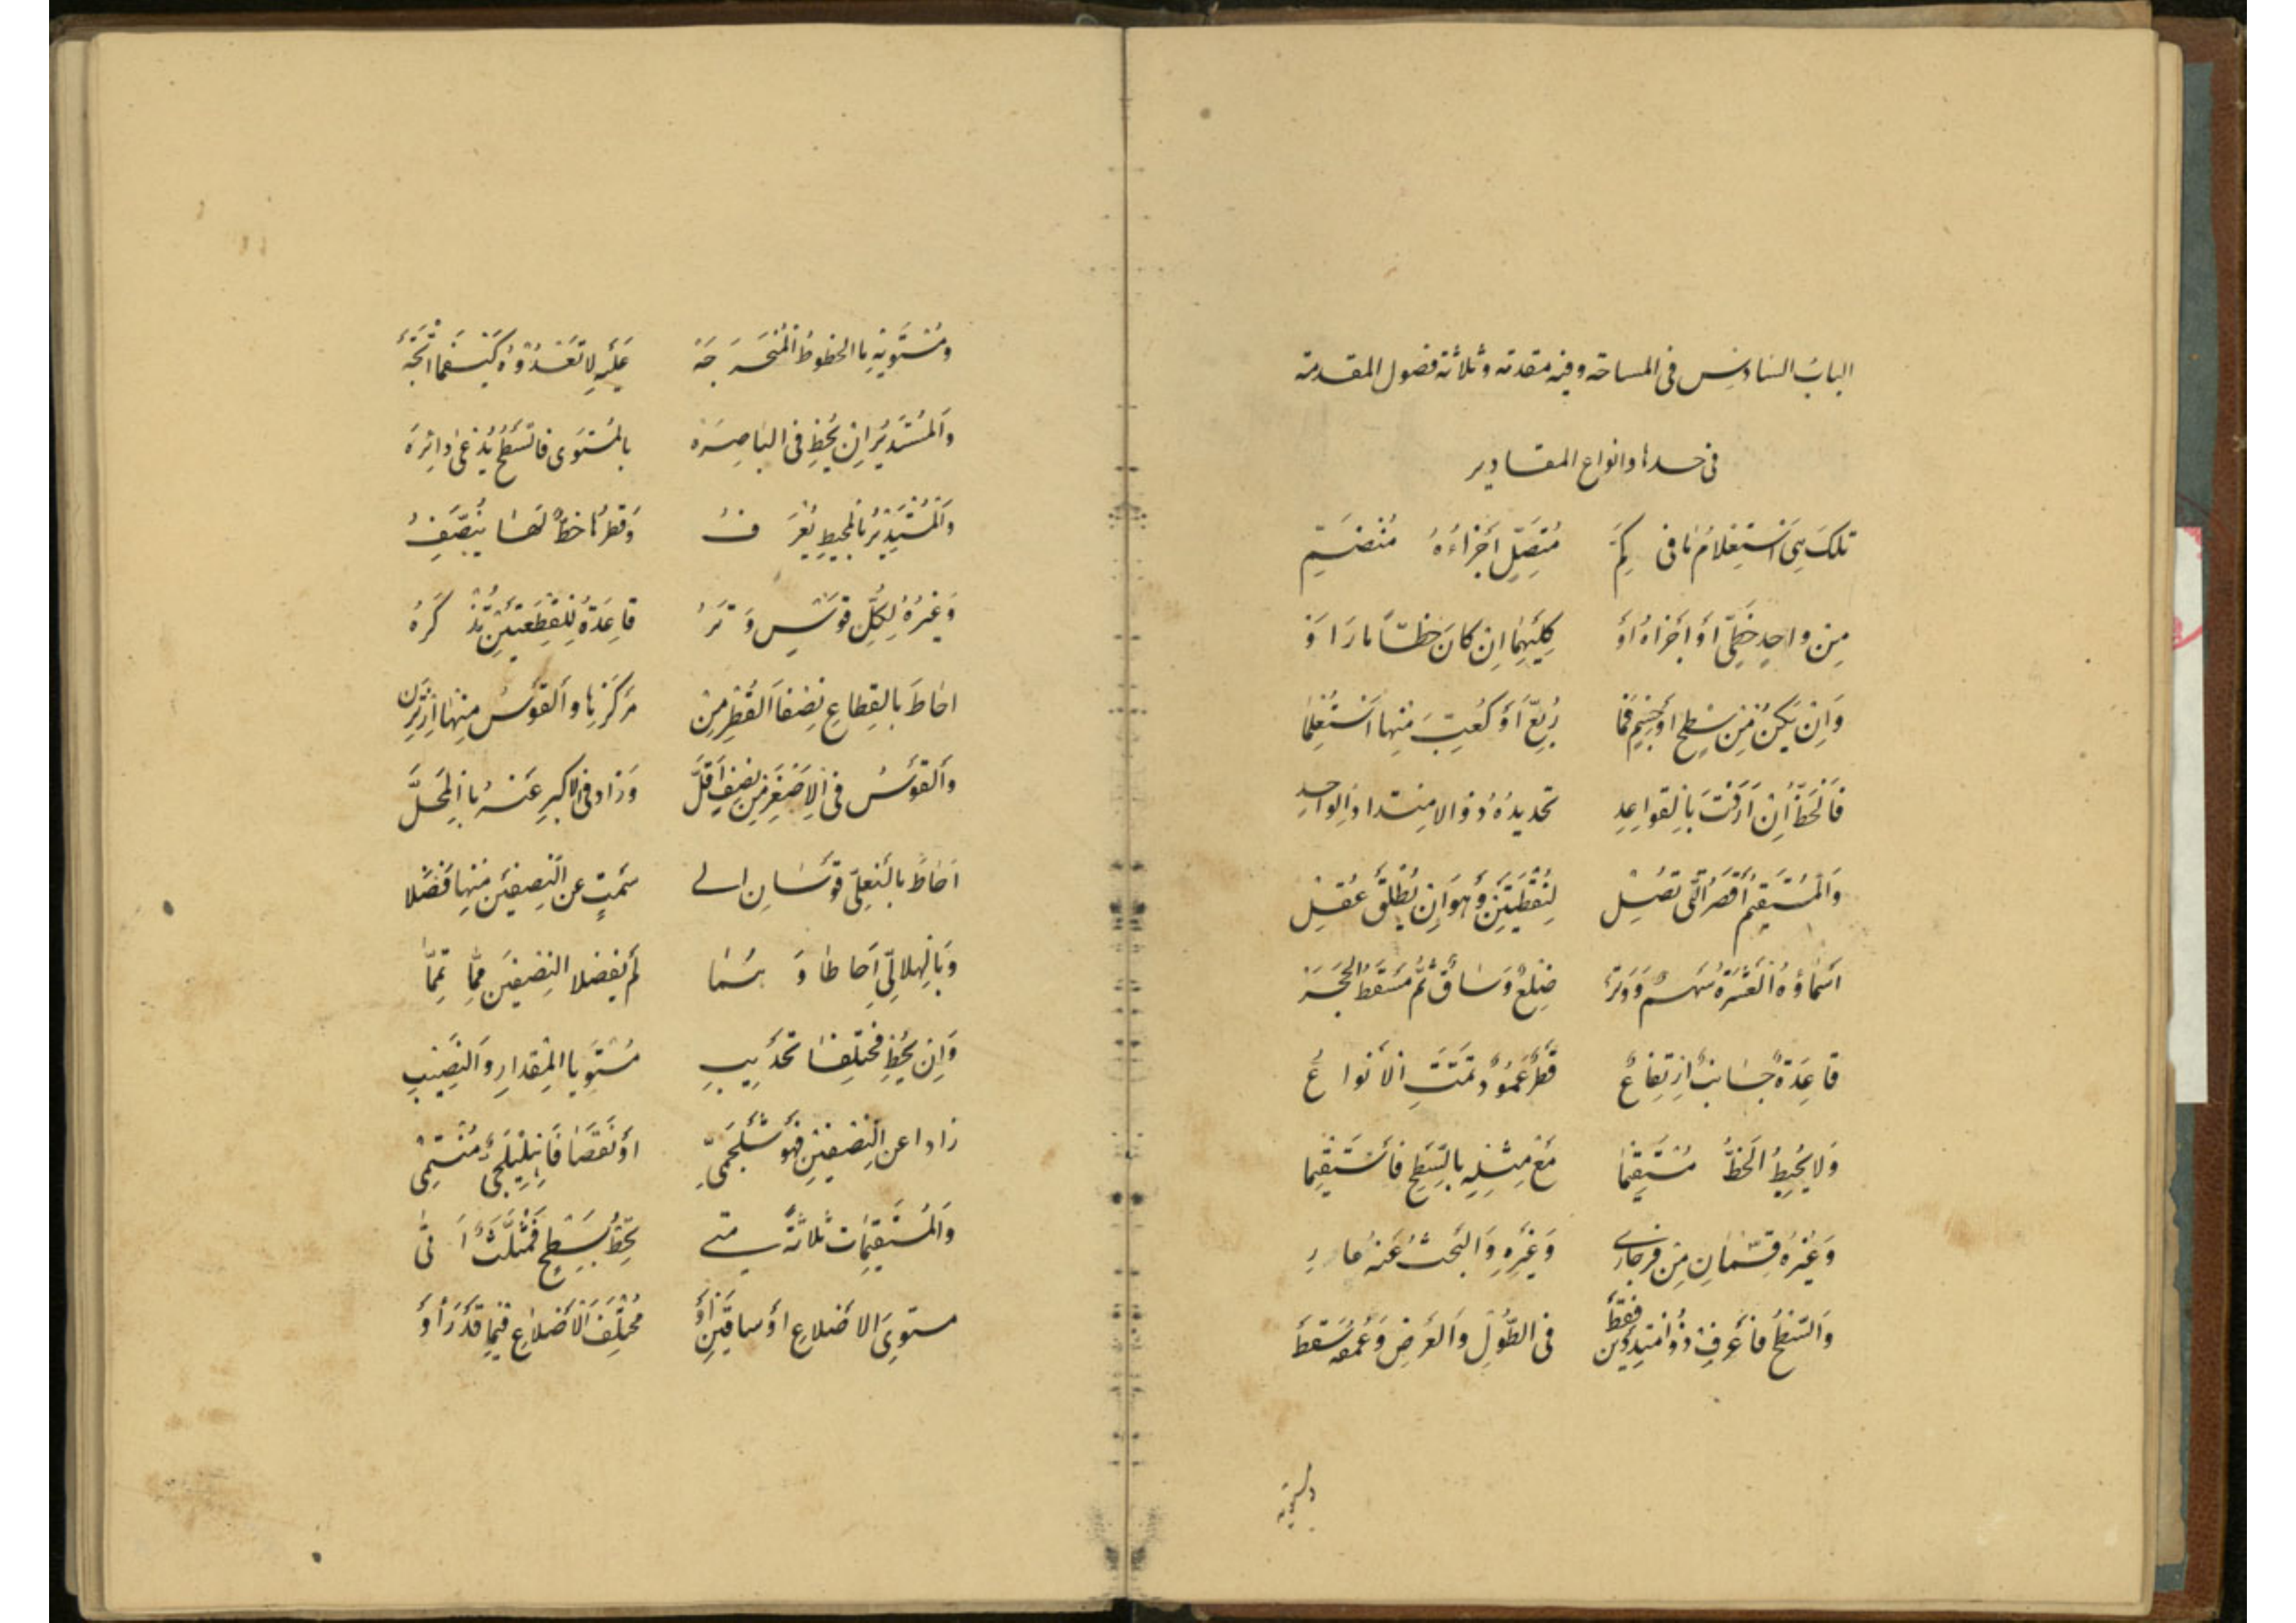 الباب السادس فى المساحة وفيه مقدمة وثلاثة فصول المقدمة
فى حدها وانواع المقادير
تلك هى استعلام ما فى كم متصل أجزاءه منضم
من واحد خطى أو أجزاه أو كليهما ان كان خطا ما رأوا
وان يكن من سطح او جسم فما ربع أو كعب منها استعلما
فالخط ان أردت بالقواعد تحديده ذو الامتداد الواحد
والمستقيم أقصر التى تصل لنقطتين وهو ان يطلق عقل
اسماؤه العشرة سهم ووتر ضلع وساق ثم مسقط الحجر
قاعدة جانب ارتفاع قطر عمود تمت الأنواع
ولا يحيط الخط مستقيما مع مثله بالسطح فاستقيما
وغيره قسمان من فرجارى وغيره والبحث عنه عار
والسطح فأعرف ذو امتدادين فقط فى الطول والعرض وعمقه سقط
ومستويه ما الخطوط المخرجة عليه لا تعدوه كيفما اتجه
والمستدير ان يحط فى الباصرة بالمستوى فالسطح يدعى دائرة
والمستدير بالمحيط يعرف وقطرها خط لها ينصف
وغيره لكل قوس وتر قاعدة للقطعتين تذكره
احاط بالقطاع نصفا القطر من مركزها والقوس منها
والقوس فى الاصغر من نصف أقل وزاد فى الاكبر عنه بالمحل
احاط بالنعلى قوسان الى سمت عن النصفين منها فضلا
وبالهلالى احاطا وهما لم يفضلا النصفين مما تمما
وان يحط مختلفا تحديب مستويا المقدار والنصيب
زادا عن النصفين فهو شلجمى او نقصا فاهليلجى منتمى
والمستقيمات ثلاثة متى تحط بسطح فمثلث أتى
مستوى الاضلاع او ساقين أو مختلف الأضلاع فيما قد رأوا